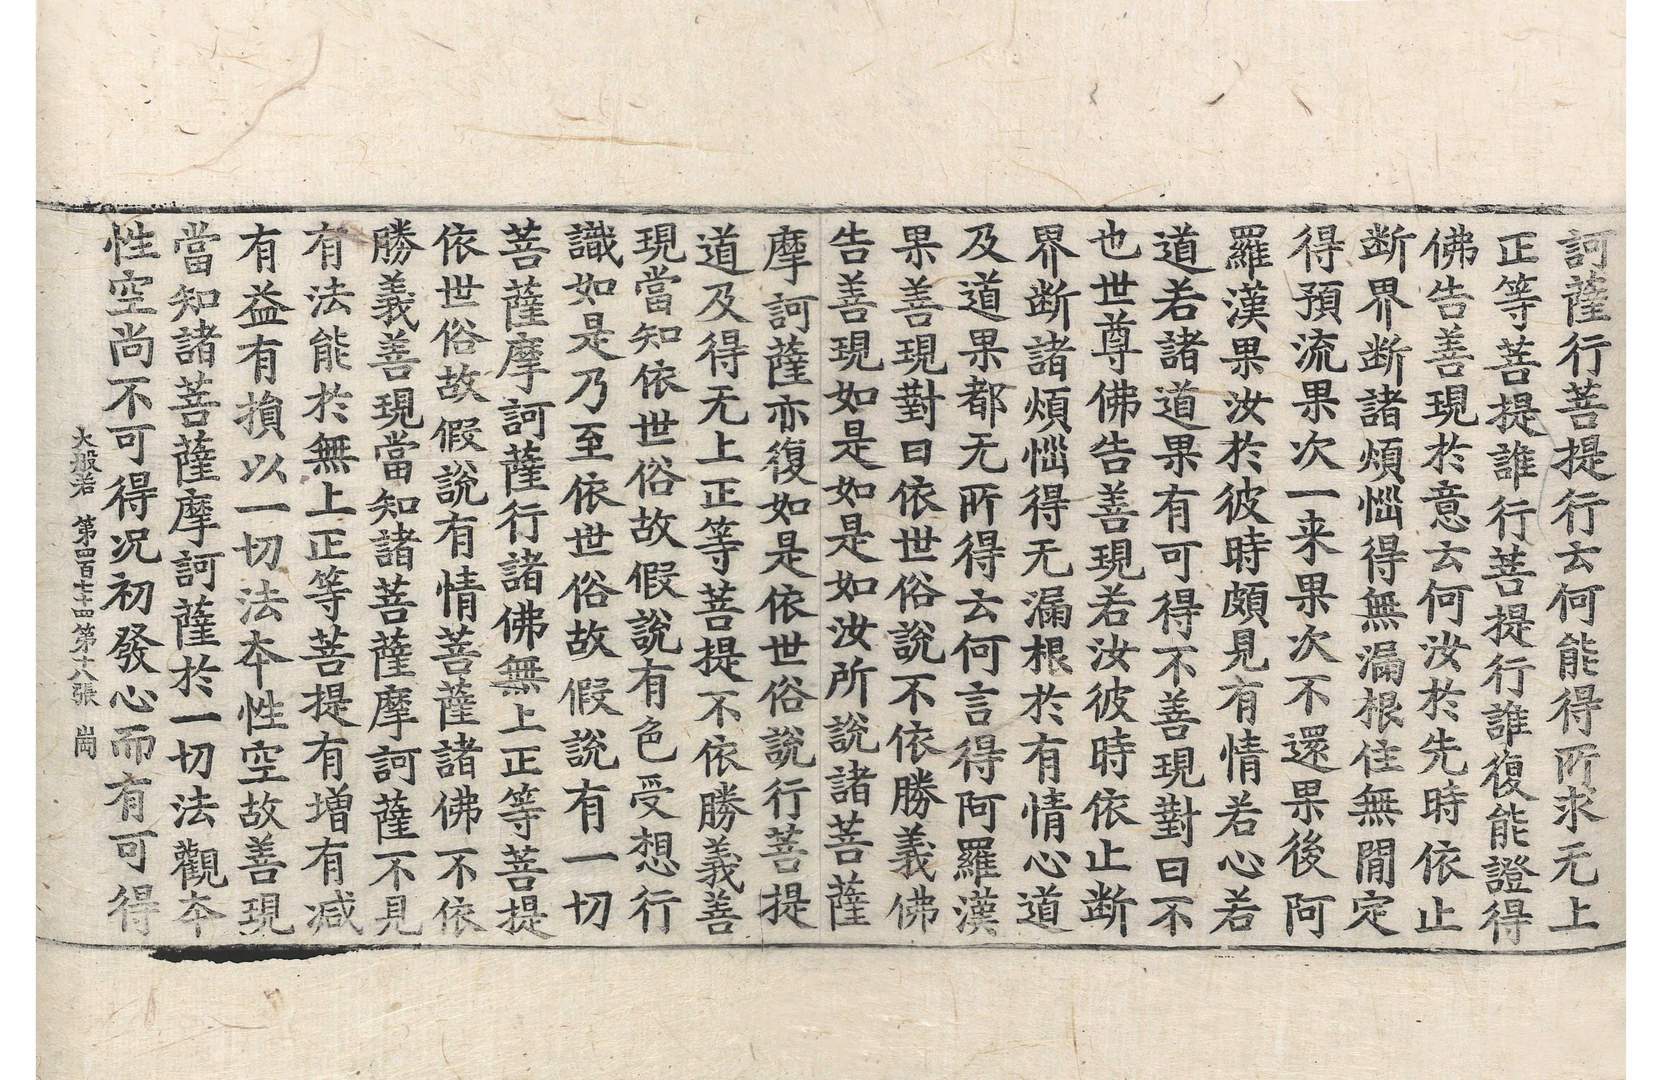 訶薩行菩提行云何能得所求无上
正等菩提誰行菩提行誰復能證得
佛告善現於意云何汝於先時依止
断界断諸煩惱得無漏根住無間定
得預流果次一来果次不還果後阿
羅漢果汝於彼時頗見有情若心若
道若諸道果有可得不善現對曰不
也世尊佛告善現若汝彼時依止断
界断諸煩惱得无漏根於有情心道
及道果都无所得云何言得阿羅漢
果善現對曰依世俗說不依勝義佛
告善現如是如是如汝所說諸菩薩
摩訶薩亦復如是依世俗說行菩提
道及得无上正等菩提不依勝義善
現當知依世俗故假說有色受想行
識如是乃至依世俗故假說有一切
菩薩摩訶薩行諸佛無上正等菩提
依世俗故假說有情菩薩諸佛不依
勝義善現當知諸菩薩摩訶薩不見
有法能於無上正等菩提有增有减
有益有損以一切法夲性空故善現
當知諸菩薩摩訶薩於一切法觀夲
性空尚不可得况初發心而有可得
大般若 第四百七十四 第十八張 崗